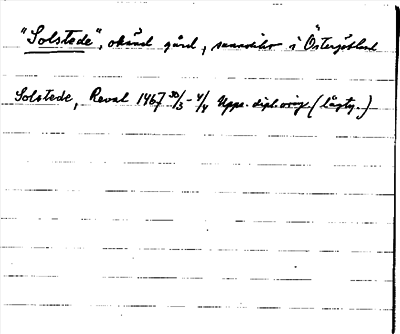 "Solstede", okänd gård, sannolikt i Östergötland
Solstede, Reval 1467 30/3 - 4/4 Upps. dipl. orig (lågty.)